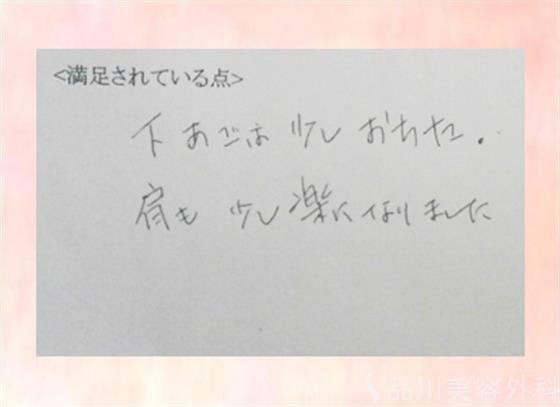 <満足されている点>
下あごは 少し おちた。
肩も 少し 楽になりました
品川美容外科